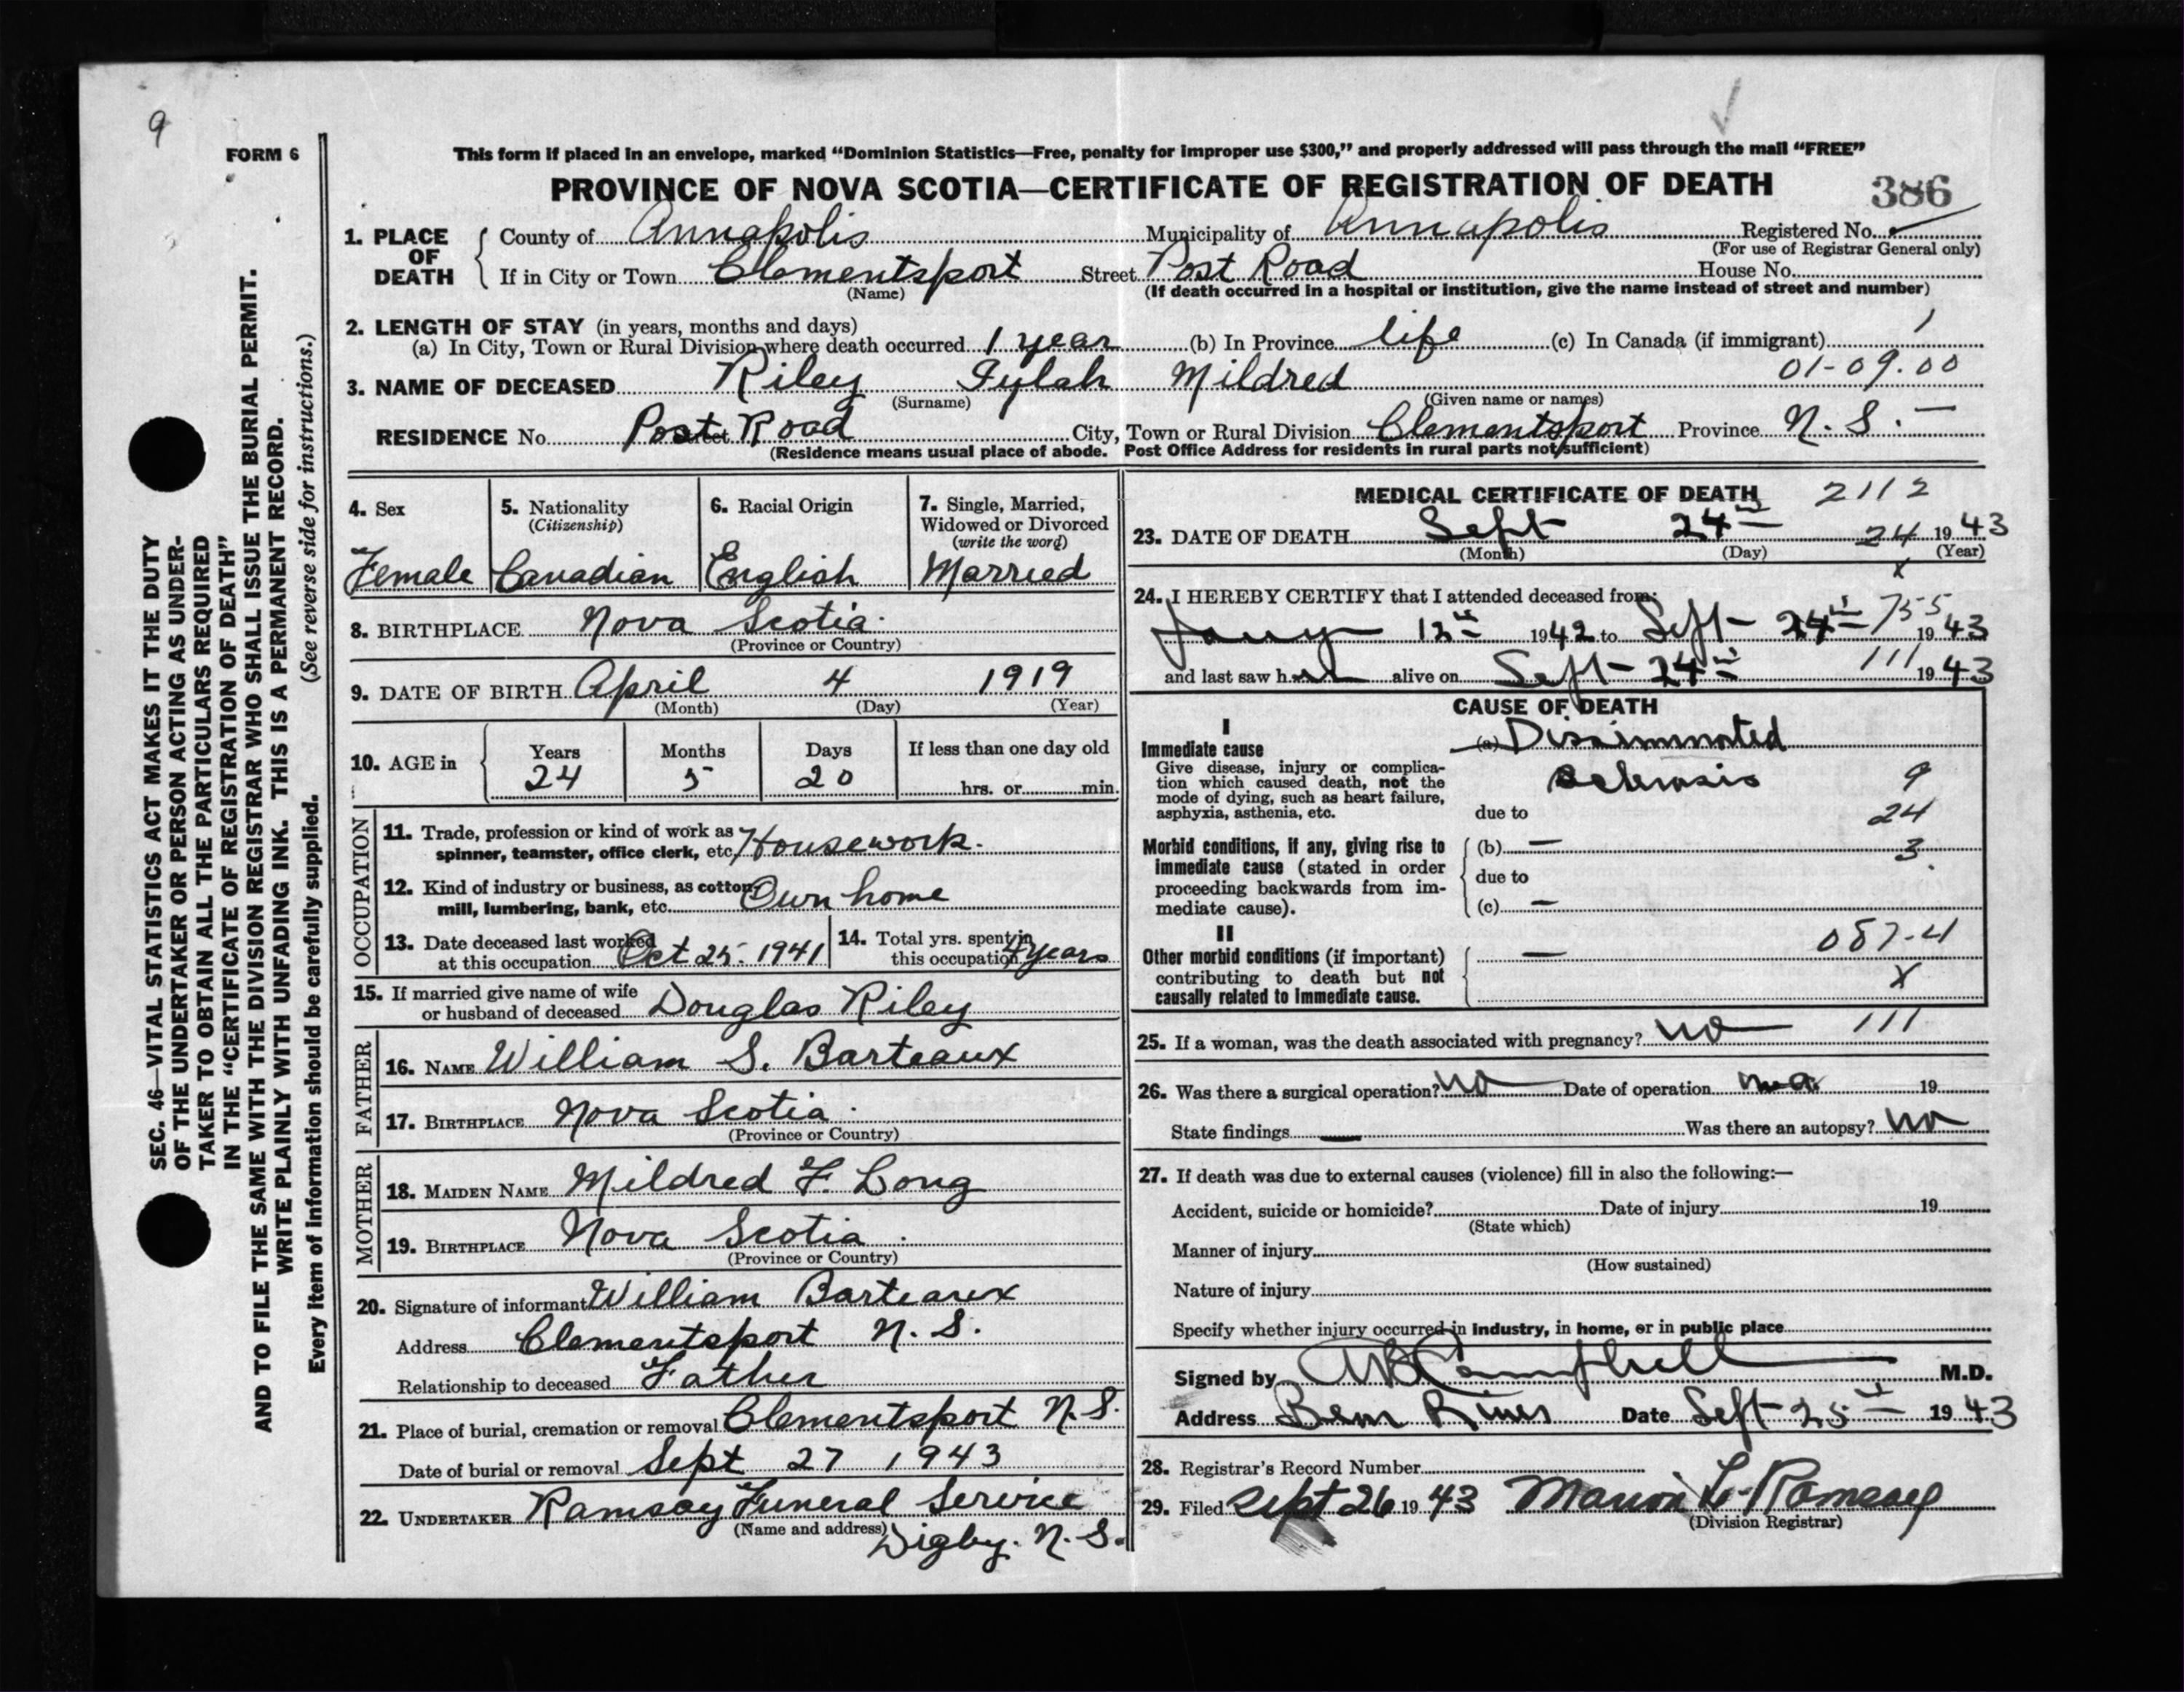 9
FORM 6
This form if placed in an envelope, marked "Dominion Statistics—Free, penalty for improper use $300," and properly addressed will pass through the mail "FREE"
PROVINCE OF NOVA SCOTIA—CERTIFICATE OF REGISTRATION OF DEATH 386
1. PLACE OF DEATH
County of Annapolis Municipality of Annapolis Registered No.
(For use of Registrar General only)
If in City or Town Clementsport Street Post Road House No.
(Name) (If death occurred in a hospital or institution, give the name instead of street and number)
2. LENGTH OF STAY (in years, months and days)
(a) In City, Town or Rural Division where death occurred 1 year (b) In Province life (c) In Canada (if immigrant) 1
3. NAME OF DECEASED Riley Iylah Mildred 01-09.00
(Surname) (Given name or names)
RESIDENCE No. Street Post Road City, Town or Rural Division Clementsport Province N. S. —
(Residence means usual place of abode. Post Office Address for residents in rural parts not sufficient)
4. Sex
Female
5. Nationality
(Citizenship)
Canadian
6. Racial Origin
English
7. Single, Married,
Widowed or Divorced
(write the word)
Married
8. BIRTHPLACE Nova Scotia
(Province or Country)
9. DATE OF BIRTH April 4 1919
(Month) (Day) (Year)
10. AGE in
Years Months Days If less than one day old
24 5 20 hrs. or min.
OCCUPATION
11. Trade, profession or kind of work as
spinner, teamster, office clerk, etc. Housework.
12. Kind of industry or business, as cotton
mill, lumbering, bank, etc. Own home
13. Date deceased last worked
at this occupation Oct 25. 1941
14. Total yrs. spent in
this occupation 4 years
15. If married give name of wife
or husband of deceased Douglas Riley
FATHER
16. NAME William S. Barteaux
17. BIRTHPLACE Nova Scotia
(Province or Country)
MOTHER
18. MAIDEN NAME Mildred F. Long
19. BIRTHPLACE Nova Scotia
(Province or Country)
20. Signature of informant William Barteaux
Address Clementsport N. S.
Relationship to deceased Father
21. Place of burial, cremation or removal Clementsport N. S.
Date of burial or removal Sept 27 1943
22. UNDERTAKER Ramsay Funeral Service
(Name and address) Digby. N. S.
MEDICAL CERTIFICATE OF DEATH 2112
23. DATE OF DEATH Sept 24th 24 1943
(Month) (Day) (Year)
x
24. I HEREBY CERTIFY that I attended deceased from:
Jany 12th 1942 to Sept 24th 755 1943
and last saw her alive on Sept 24th 111 1943
CAUSE OF DEATH
I
Immediate cause
Give disease, injury or complica-
tion which caused death, not the
mode of dying, such as heart failure,
asphyxia, asthenia, etc.
(a) Dissiminated
sclerosis 9
due to 24
Morbid conditions, if any, giving rise to
immediate cause (stated in order
proceeding backwards from im-
mediate cause).
(b) — 3
due to
(c) —
II
Other morbid conditions (if important)
contributing to death but not
causally related to immediate cause.
— 087-4
X
25. If a woman, was the death associated with pregnancy? no 111
26. Was there a surgical operation? no Date of operation 19
State findings — Was there an autopsy? no
27. If death was due to external causes (violence) fill in also the following:—
Accident, suicide or homicide? Date of injury 19
(State which)
Manner of injury
(How sustained)
Nature of injury
Specify whether injury occurred in industry, in home, or in public place
Signed by Campbell M.D.
Address Bear River Date Sept 25th 1943
28. Registrar's Record Number
29. Filed Sept 26 1943 Marion L. Ramsay
(Division Registrar)
SEC. 46—VITAL STATISTICS ACT MAKES IT THE DUTY
OF THE UNDERTAKER OR PERSON ACTING AS UNDER-
TAKER TO OBTAIN ALL THE PARTICULARS REQUIRED
IN THE "CERTIFICATE OF REGISTRATION OF DEATH"
AND TO FILE THE SAME WITH THE DIVISION REGISTRAR WHO SHALL ISSUE THE BURIAL PERMIT.
WRITE PLAINLY WITH UNFADING INK. THIS IS A PERMANENT RECORD.
(See reverse side for instructions.)
Every item of information should be carefully supplied.